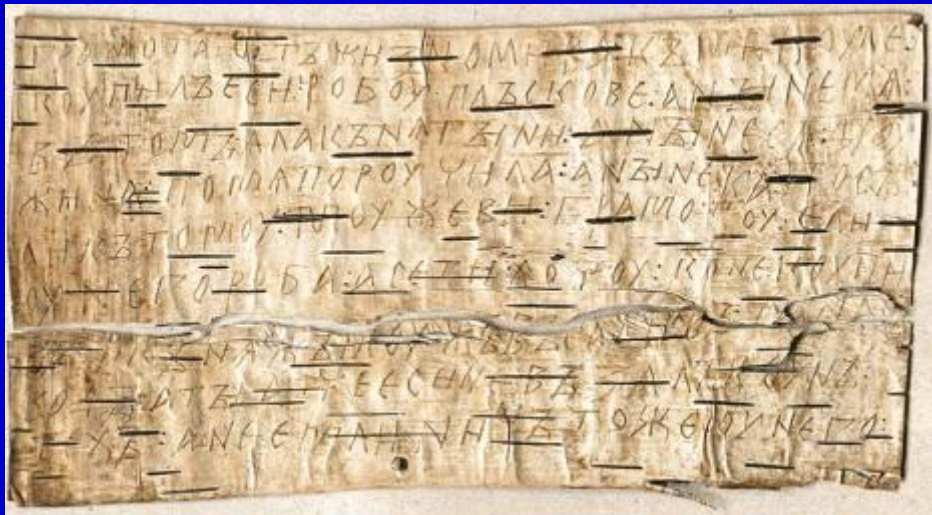 ГРАМОТА : ОТЪ ЖИЗНОМИРА : КЪ МИКОУЛЕ :
КОУПИЛЪ ЕСИ : РОБОУ : ПЛЪСКОВЕ : А НЫНЕ МѦ :
ВЪ ТОМЪ : ѦЛА КЪНѦГЫНИ : А НЫНЕ СѦ ДРОУ
ЖИНА : ПО МѦ ПОРОУЧИЛА : А НЫНЕ КА : ПОСЪ
ЛИ КЪ ТОМОУ : МОУЖЕВИ : ГРАМОТОУ : Е ЛИ
ОУ НЕГО РОБА : А СЕ ТИ ХОЧОУ : КОНЕ КОУПИ
МОУЖЪ ВЪСА ТА НА
ВОДЫ : А ТЫ АТЧЕ ЕСИ НЕ ВЪЗАЛЪ КОУНЪ :
ТЕХЪ : А НЕ ЕМЛИ : НИЧЪТО ЖЕ ОУ НЕГО :